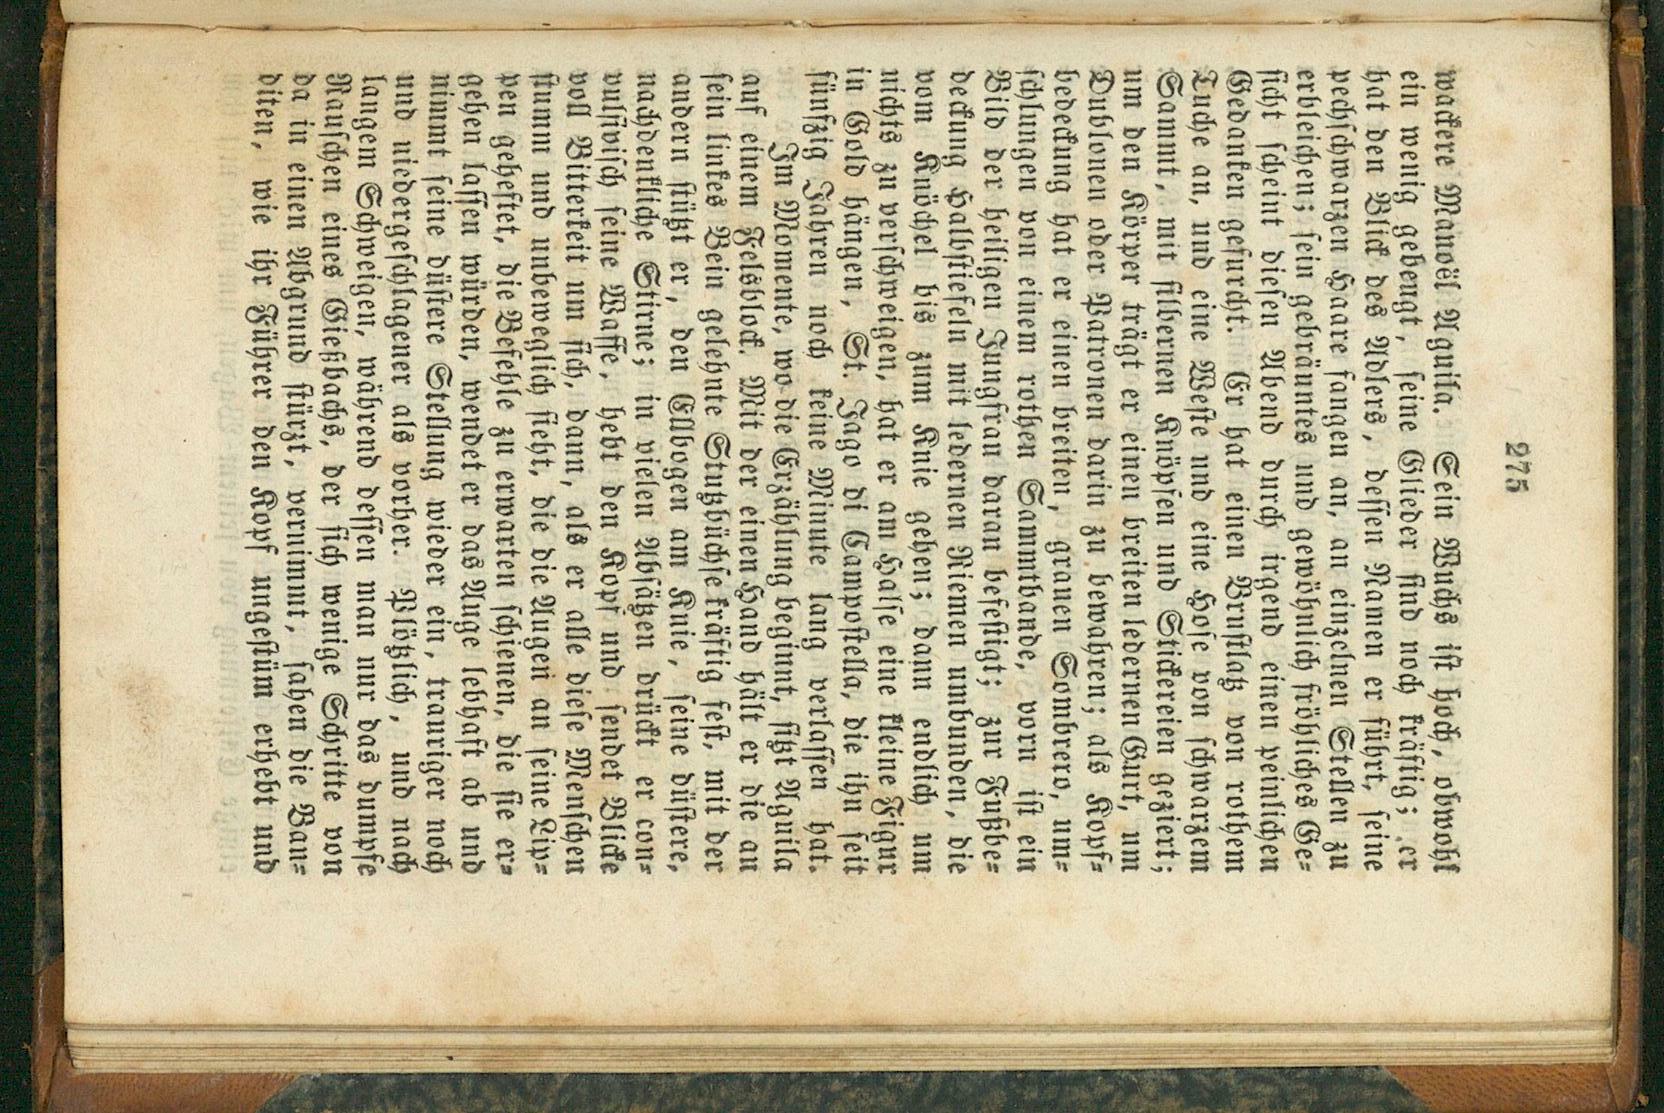 275
wackere Manoël Aguila. Sein Wuchs ist hoch, obwohl
ein wenig gebeugt, seine Glieder sind noch kräftig; er
hat den Blick des Adlers, dessen Namen er führt, seine
pechschwarzen Haare fangen an, an einzelnen Stellen zu
erbleichen; sein gebräuntes und gewöhnlich fröhliches Ge-
sicht scheint diesen Abend durch irgend einen peinlichen
Gedanken gefurcht. Er hat einen Brustlatz von rothem
Tuche an, und eine Weste und eine Hose von schwarzem
Sammt, mit silbernen Knöpfen und Stickereien geziert;
um den Körper trägt er einen breiten ledernen Gurt, um
Dublonen oder Patronen darin zu bewahren; als Kopf-
bedeckung hat er einen breiten, grauen Sombrero, um-
schlungen von einem rothen Sammtbande, vorn ist ein
Bild der heiligen Jungfrau daran befestigt; zur Fußbe-
deckung Halbstiefeln mit ledernen Riemen umbunden, die
vom Knöchel bis zum Knie gehen; dann endlich um
nichts zu verschweigen, hat er am Halse eine kleine Figur
in Gold hängen, St. Jago di Campostella, die ihn seit
fünfzig Jahren noch keine Minute lang verlassen hat.
Im Momente, wo die Erzählung beginnt, sitzt Aguila
auf einem Felsblock. Mit der einen Hand hält er die an
sein linkes Bein gelehnte Stutzbüchse kräftig fest, mit der
andern stützt er, den Ellbogen am Knie, seine düstere,
nachdenkliche Stirne; in vielen Absätzen drückt er con-
vulsivisch seine Waffe, hebt den Kopf und sendet Blicke
voll Bitterkeit um sich, dann, als er alle diese Menschen
stumm und unbeweglich sieht, die die Augen an seine Lip-
pen geheftet, die Befehle zu erwarten schienen, die sie er-
gehen lassen würden, wendet er das Auge lebhaft ab und
nimmt seine düstere Stellung wieder ein, trauriger noch
und niedergeschlagener als vorher. Plötzlich, und nach
langem Schweigen, während dessen man nur das dumpfe
Rauschen eines Gießbachs, der sich wenige Schritte von
da in einen Abgrund stürzt, vernimmt, sahen die Ban-
diten, wie ihr Führer den Kopf ungestüm erhebt und